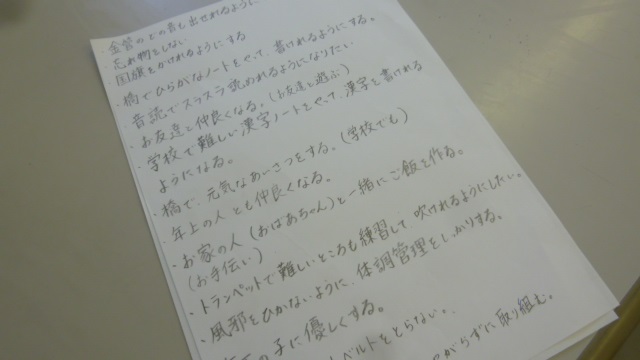 ・金管のどの音も出せれるように
忘れ物をしない
国旗をかけれるようにする
・橋でひらがなノートをやって、書けれるようにする。
音読でスラスラ読めれるようになりたい
・お友達と仲良くなる。(お友達と遊ぶ)
・学校で難しい漢字ノートをやって、漢字を書けれる
ようになる。
・橋で、元気なあいさつをする。(学校でも)
・年上の人とも仲良くなる。
・お家の人(おばあちゃん)と一緒にご飯を作る。
(お手伝い)
・トランペットで難しいところも練習して、吹けれるようにしたい。
・風邪をひかないように、体調管理をしっかりする。
の子に優しくする。
ベルトをとらない。
がらずに取り組む。